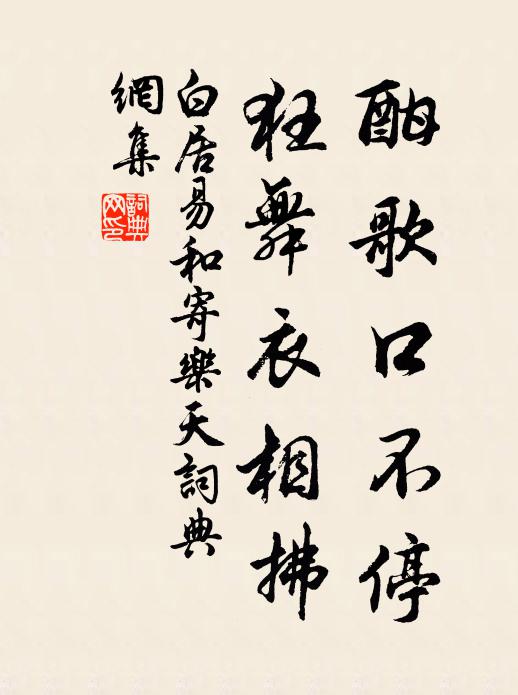 酣歌口不停
狂舞衣相拂
白居易和寄樂天詞典
網集
詞典網印